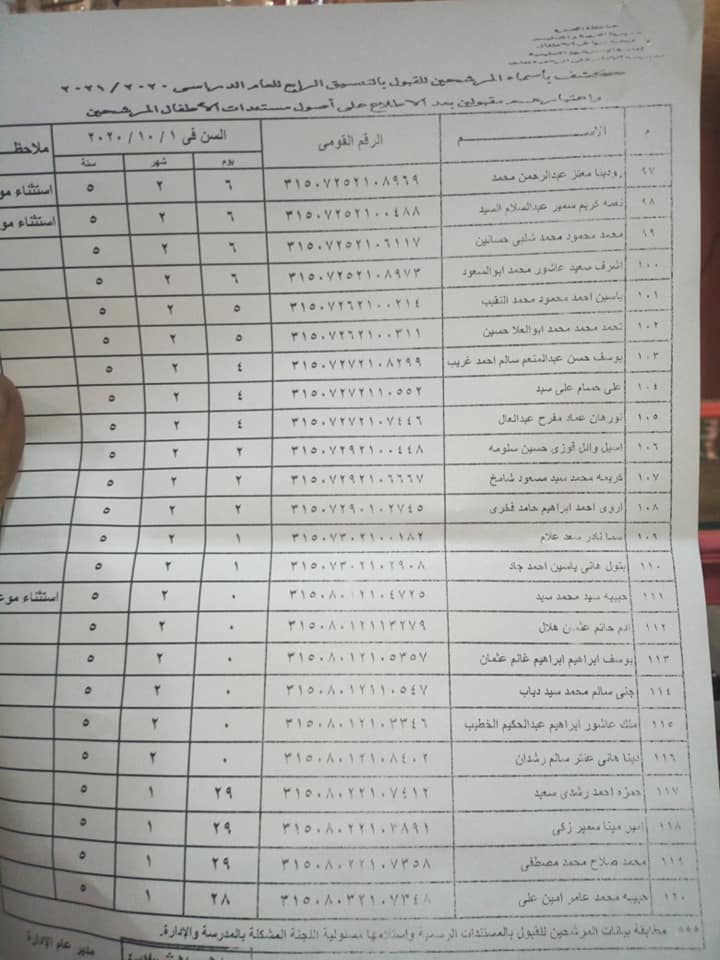 كشف بأسماء المرشحين للقبول بالتنسيق الرابع للعام الدراسى ٢٠٢٠ / ٢٠٢١
واعتبارهم مقبولين بعد الاطلاع على أصول مستندات الأطفال المرشحين
م الاســـم الرقم القومى السن فى ١ / ١٠ / ٢٠٢٠ ملاحظ
يوم شهر سنة
٩٧ رودينا معتز عبدالرحمن محمد ٣١٥٠٧٢٥٢١٠٨٩٦٩ ٦ ٢ ٥ استثناء مو
٩٨ كريم سمير عبدالسلام السيد ٣١٥٠٧٢٥٢١٠٠٤٨٨ ٦ ٢ ٥ استثناء مو
٩٩ محمد محمود محمد شلبى حسانين ٣١٥٠٧٢٥٢١٠٦١١٧ ٦ ٢ ٥
١٠٠ اشرف سعيد عاشور محمد ابوالسعود ٣١٥٠٧٢٥٢١٠٨٩٧٣ ٦ ٢ ٥
١٠١ ياسين احمد محمود محمد النقيب ٣١٥٠٧٢٦٢١٠٠٢١٤ ٥ ٢ ٥
١٠٢ محمد محمد ابوالعلا حسين ٣١٥٠٧٢٦٢١٠٠٣١١ ٥ ٢ ٥
١٠٣ يوسف حسن عبدالمنعم سالم احمد غريب ٣١٥٠٧٢٧٢١٠٨٢٩٩ ٤ ٢ ٥
١٠٤ على حسام على سيد ٣١٥٠٧٢٧٢١١٠٥٥٢ ٤ ٢ ٥
١٠٥ نورهان عماد مفرح عبدالعال ٣١٥٠٧٢٧٢١٠٧٤٤٦ ٤ ٢ ٥
١٠٦ اسيل وائل فوزى حسين سلومه ٣١٥٠٧٢٩٢١٠٠٤٤٨ ٢ ٢ ٥
١٠٧ كريمه محمد سيد مسعود شامخ ٣١٥٠٧٢٩٢١٠٦٦٦٧ ٢ ٢ ٥
١٠٨ اروى احمد ابراهيم حامد فخرى ٣١٥٠٧٢٩٠١٠٢٧٤٥ ٢ ٢ ٥
١٠٩ سما نادر سعد علام ٣١٥٠٧٣٠٢١٠٠١٨٢ ١ ٢ ٥
١١٠ بتول هانى ياسين احمد جاد ٣١٥٠٧٣٠٢١٠٢٩٠٨ ١ ٢ ٥
١١١ حبيبه سيد محمد سيد ٣١٥٠٨٠١٢١٠٤٧٢٥ ٠ ٢ ٥ استثناء موع
١١٢ ادم حاتم عثمان هلال ٣١٥٠٨٠١٢١١٣٢٧٩ ٠ ٢ ٥
١١٣ يوسف ابراهيم ابراهيم غانم عثمان ٣١٥٠٨٠١٢١٠٥٣٥٧ ٠ ٢ ٥
١١٤ جنى سالم محمد سيد دياب ٣١٥٠٨٠١٢١١٠٥٤٧ ٠ ٢ ٥
١١٥ ملك عاشور ابراهيم عبدالحكيم الخطيب ٣١٥٠٨٠١٢١٠٣٣٤٦ ٠ ٢ ٥
١١٦ دينا هانى عنتر سالم رشدان ٣١٥٠٨٠١٢١٠٨٤٠٢ ٠ ٢ ٥
١١٧ حمزه احمد رشدى سعيد ٣١٥٠٨٠٢٢١٠٧٤١٢ ٢٩ ١ ٥
١١٨ امير مينا سمير زكى ٣١٥٠٨٠٢٢١٠٣٨٩١ ٢٩ ١ ٥
١١٩ محمد صلاح محمد مصطفى ٣١٥٠٨٠٢٢١٠٧٣٥٨ ٢٩ ١ ٥
١٢٠ حبيبه محمد عامر امين على ٣١٥٠٨٠٣٢١٠٧٣٤٨ ٢٨ ١ ٥
*** مطابقة بيانات المرشحين للقبول بالمستندات الرسمية واستلامها مسئولية اللجنة المشكلة بالمدرسة والإدارة.
مدير عام الإدارة